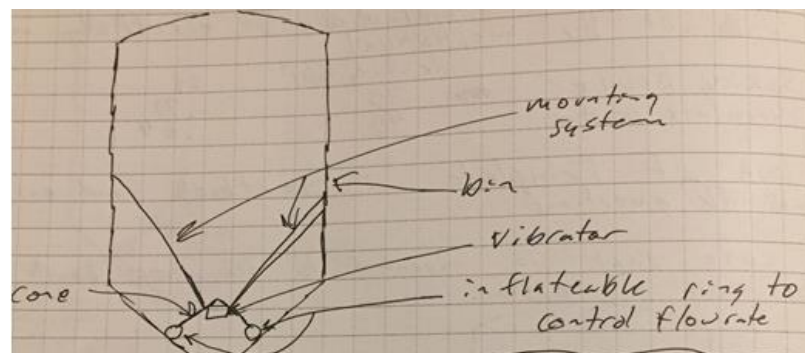 mounting
system
bin
vibrator
cone
inflateable ring to
control flowrate